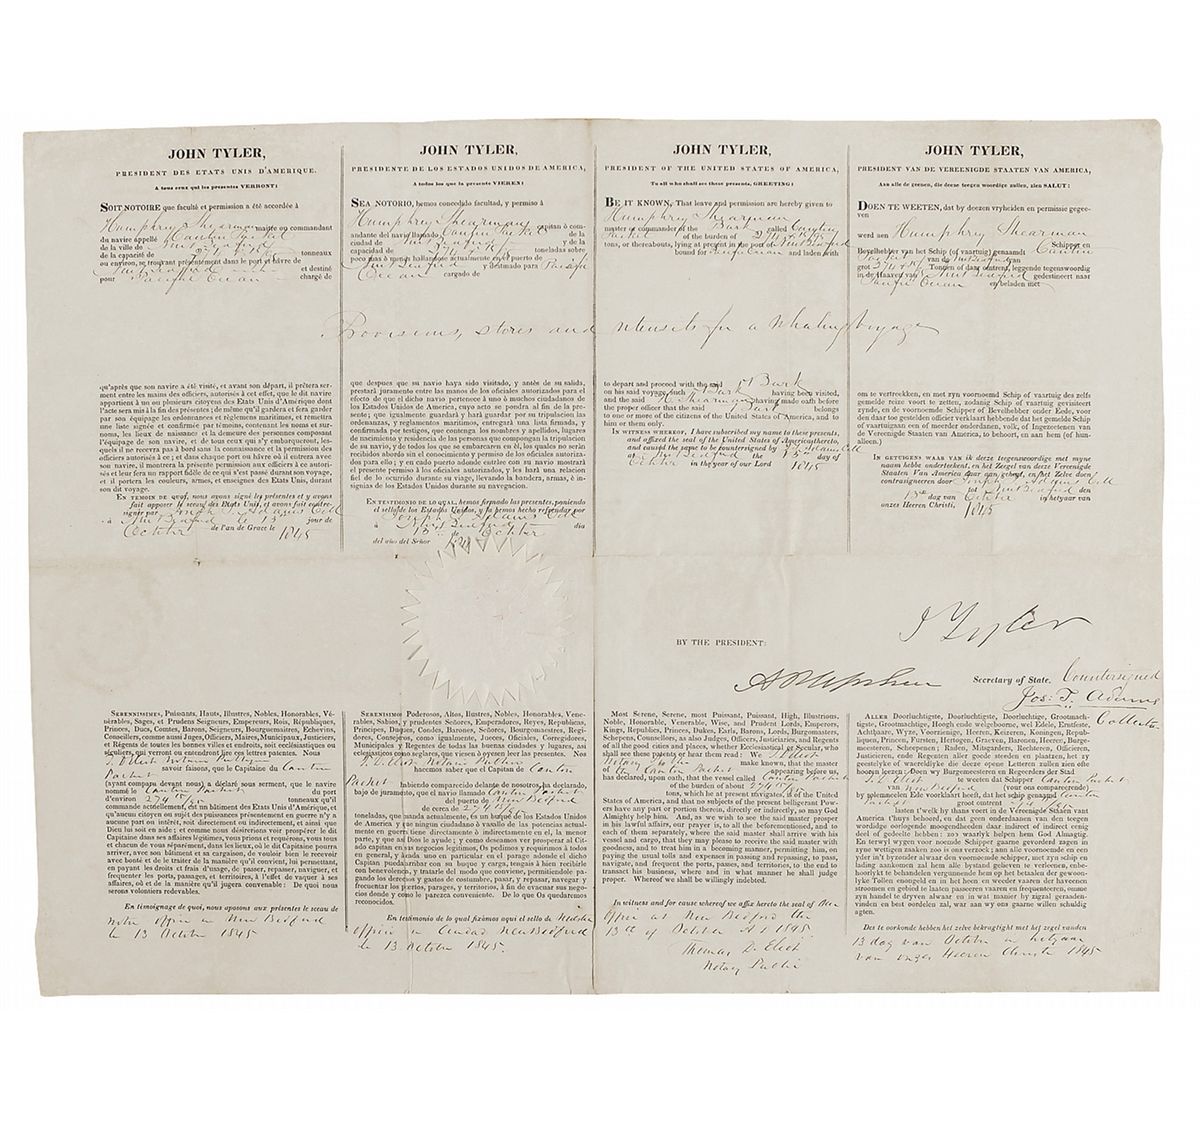 JOHN TYLER,
PRESIDENT DES ETATS UNIS D'AMERIQUE.
A tous ceux qui les présentes VERRONT:
SOIT NOTOIRE que faculté et permission a été accordée à
Humphrey Shearman maitre ou commandant
du navire appelé Canton Packet
de la ville de New Bedford
de la capacité de 274 tonneaux
ou environ, se trouvant présentement dans le port et hâvre de
New Bedford et destiné
pour Pacific Ocean chargé de
Provisions, stores and utensils for a whaling voyage
qu'après que son navire a été visité, et avant son départ, il prêtera ser-
ment entre les mains des officiers, autorisés à cet effet, que le dit navire
appartient à un ou plusieurs citoyens des Etats Unis d'Amérique dont
l'acte sera mis à la fin des présentes; de même qu'il gardera et fera garder
par son équipage les ordonnances et règlemens maritimes, et remettra
une liste signée et confirmée par témoins, contenant les noms et sur-
noms, les lieux de naissance et la demeure des personnes composant
l'équipage de son navire, et de tous ceux qui s'y embarqueront, les-
quels il ne recevra pas à bord sans la connaissance et la permission des
officiers autorisés à ce; et dans chaque port ou hâvre où il entrera avec
son navire, il montrera la présente permission aux officiers à ce autori-
sés et leur fera un rapport fidèle de ce qui s'est passé durant son voyage,
et il portera les couleurs, armes, et enseignes des Etats Unis, durant
son dit voyage.
EN TEMOIN DE QUOI, nous avons signé les présentes et y avons
fait apposer le sceau des Etats Unis, et avons fait contre-
signer par Joseph T. Adams Coll
à New Bedford le 13 jour de
October de l'an de Grace le 1845
JOHN TYLER,
PRESIDENTE DE LOS ESTADOS UNIDOS DE AMERICA,
A todos los que la presente VIEREN:
SEA NOTORIO, hemos concedido facultad, y permiso á
Humphrey Shearman capitan ó com-
andante del navio llamado Canton Packet de la
ciudad de New Bedford y de la
capacidad de 274 toneladas sobre
poco mas ó menos hallandose actualmente en el puerto de
New Bedford y destinado para Pacific
Ocean cargado de
que despues que su navio haya sido visitado, y antes de su salida,
prestará juramento entre las manos de los oficiales autorizados para el
efecto de que el dicho navio pertenece á uno ó muchos ciudadanos de
los Estados Unidos de America, cuyo acto se pondra al fin de la pre-
sente; que guardará y hará guardar por su tripulacion las
ordenanzas, y reglamentos maritimos, entregará una lista firmada, y
confirmada por testigos, que contenga los nombres y apellidos, lugares
de nacimiento y residencia de las personas que compongan la tripulacion
de su navio, y de todos los que se embarcaren en él, los quales no serán
recibidos abordo sin el conocimiento y permiso de los oficiales autorizados
para ello; y en cada puerto adonde entrare con su navio mostrará
el presente permiso á los oficiales autorizados, y les hará una relacion
fiel de lo ocurrido durante su viage, llevando la bandera, armas, é in-
signias de los Estados Unidos durante su navegacion.
EN TESTIMONIO DE LO QUAL, hemos firmado las presentes, poniendo
el sello de los Estados Unidos, y la hemos hecho refrendar por
Joseph T. Adams Coll
á New Bedford dia
13 de October
del año del Señor 1845
JOHN TYLER,
PRESIDENT OF THE UNITED STATES OF AMERICA,
To all who shall see these presents, GREETING:
BE IT KNOWN, That leave and permission are hereby given to
Humphrey Shearman
master or commander of the Bark called Canton
Packet of the burden of 274
tons, or thereabouts, lying at present in the port of New Bedford
bound for Pacific Ocean and laden with
to depart and proceed with the said Bark
on his said voyage, such Bark having been visited,
and the said H. Shearman having made oath before
the proper officer that the said Bark belongs
to one or more of the citizens of the United States of America, and to
him or them only.
IN WITNESS WHEREOF, I have subscribed my name to these presents,
and affixed the seal of the United States of America thereto,
and caused the same to be countersigned by J. T. Adams Coll
at New Bedford the 13th day of
October in the year of our Lord 1845
JOHN TYLER,
PRESIDENT VAN DE VEREENIGDE STAATEN VAN AMERICA,
Aan alle de geenen, die deese teegen woordige zullen, zien SALUT:
DOEN TE WEETEN, dat by deezen vryheiden en permissie gegee-
ven
werd aen Humphrey Shearman
Schipper en
Bevelhebber van het Schip (of vaartuig) genaamdt Canton
Packet van de New Bedford van
grot 274 Tonnen of daar omtrent, leggende tegenswoordig
in de Haaven van New Bedford gedestineert naar
Pacific Ocean en beladen met
om te vertrekken, en met zyn voornoemd Schip of vaartuig des zelfs
gemelde reize voort te zetten, zodanig Schip of vaartuig gevisiteert
zynde, en de voornoemde Schipper of Bevelhebber onder Eede, voor
den daar toe gestelden officier verklaart hebbende, dat het gemelde Schip
of vaartuigen aan een of meerder onderdanen, volk, of Ingezeetenen van
de Vereenigde Staaten van America, to behoort, en aan hem (of hun-
alleen.)
IN GETUIGENS WAAR VAN ik deeze teegenswoordige met myne
naam hebbe ondertekent, en het Zeegel van deeze Vereenigde
Staaten Van America daar aan gehegt, en het Zelve doen
contrasigneeren door Joseph T. Adams Coll
tot New Bedford den
13th dag van October in het yaar van
onzes Heeren Christi, 1845
J Tyler
BY THE PRESIDENT:
A P Upshur Secretary of State.
Countersigned
Jos: T. Adams
Collector
SERENISSIMES, Puissants, Hauts, Illustres, Nobles, Honorables, Vé-
nérables, Sages, et Prudens Seigneurs, Empereurs, Rois, Républiques,
Princes, Ducs, Comtes, Barons, Seigneurs, Bourguemaitres, Echevins,
Conseillers, comme aussi Juges, Officiers, Maires, Municipaux, Justiciers,
et Régents de toutes les bonnes villes et endroits, soit ecclésiastiques ou
séculiers, qui verront ou entendront lire ces lettres patentes. Nous
T. D. Eliot Notary Public
savoir faisons, que le Capitaine du Canton
Packet
(ayant comparu devant nous) a déclaré sous serment, que le navire
nommé le Canton Packet du port
d'environ 274 tonneaux qu'il
commande actuellement, est un bâtiment des Etats Unis d'Amérique, et
qu'aucun citoyen ou sujet des puissances présentement en guerre n'y a
aucune part ou intérêt, soit directement ou indirectement, et ainsi que
Dieu lui soit en aide; et comme nous désirerions voir prospérer le dit
Capitaine dans ses affaires légitimes, vous prions et requérons, vous tous
et chacun de vous séparément, dans les lieux, où le dit Capitaine pourra
arriver, avec son bâtiment et sa cargaison, de vouloir bien le recevoir
avec bonté et de le traiter de la manière qu'il convient, lui permettant,
en payant les droits et frais d'usage, de passer, repasser, naviguer, et
frequenter les ports, passages, et territoires, à l'effet de vaquer à ses
affaires, où et de la manière qu'il jugera convenable: De quoi nous
serons volontiers redevables.
En témoignage de quoi, nous aposons aux présentes le sceau de
notre office in New Bedford
le 13 October 1845
SERENISIMOS Poderosos, Altos, Ilustres, Nobles, Honorables, Vene-
rables, Sabios, y prudentes Señores, Emperadores, Reyes, Republicas,
Principes, Duques, Condes, Barones, Señores, Bourgomaestres, Regi-
dores, Consejeros, como igualmente, Jueces, Oficiales, Corregidores,
Municipales y Regentes de todas las buenas ciudades y lugares, asi
eclesiasticos como seglares, que viesen ó oyesen leer las presentes. Nos
T. D. Eliot Notary Public
hacemos saber que el Capitan de Canton
Packet
habiendo comparecido delante de nosotros, ha declarado,
bajo de juramento, que el navio llamado Canton Packet
del puerto de New Bedford
de cerca de 274
toneladas, que manda actualmente, és un buque de los Estados Unidos
de America y que ningun ciudadano ó vasallo de las potencias actual-
mente en guerra tiene directamente ó indirectamente en el, la menor
parte, y que asi Dios le ayude; y como deseamos ver prosperar al Ci-
tado capitan en sus negocios legitimos, Os pedimos y requirimos á todos
en general, y á cada uno en particular en el parage adonde el dicho
capitan pueda arribar con su buque y carga, tengais á bien recibirle
con benevolencia, y tratarle del modo que conviene, permitiendole pa-
gando los derechos y gastos de costumbre, pasar, y repasar, navegar y
frecuentar los puertos, parages, y territorios, á fin de evacuar sus nego-
cios donde y como le parezca conveniente. De lo que Os quedaremos
reconocidos.
En testimonio de lo qual fixámos aqui el sello de Nuestro
office in Ciudad New Bedford
le 13 October 1845.
Most Serene, Serene, most Puissant, Puissant, High, Illustrious,
Noble, Honorable, Venerable, Wise, and Prudent Lords, Emperors,
Kings, Republics, Princes, Dukes, Earls, Barons, Lords, Burgomasters,
Schepens, Counsellors, as also Judges, Officers, Justiciaries, and Regents
of all the good cities and places, whether Ecclesiastical or Secular, who
shall see these patents or hear them read: We T. D. Eliot
Notary Public make known, that the master
of the Canton Packet appearing before us,
has declared, upon oath, that the vessel called Canton Packet
of the burden of about 274
tons, which he at present navigates, is of the United
States of America, and that no subjects of the present belligerant Pow-
ers have any part or portion therein, directly or indirectly, so may God
Almighty help him. And, as we wish to see the said master prosper
in his lawful affairs, our prayer is, to all the beforementioned, and to
each of them separately, where the said master shall arrive with his
vessel and cargo, that they may please to receive the said master with
goodness, and to treat him in a becoming manner, permitting him, on
paying the usual tolls and expenses in passing and repassing, to pass,
navigate, and frequent the ports, passes, and territories, to the end to
transact his business, where and in what manner he shall judge
proper. Whereof we shall be willingly indebted.
In witness and for cause whereof we affix hereto the seal of Our
Office at New Bedford the
13th of October AD 1845
Thomas D. Eliot
Notary Public
ALLER Doorluchtigste, Doorluchtigste, Doorluchtige, Grootmach-
tigste, Grootmachtige, Hoogh ende welgeboorne, wel Edele, Erntfeste,
Achtbaare, Wyze, Voorzienige, Heeren, Keizeren, Koningen, Repub-
liquen, Princen, Fursten, Hertogen, Graeven, Baronen, Heeren, Burge-
meesteren, Scheepenen; Raden, Mitsgarders, Rechteren, Officieren,
Justicieren, ende Regenten aller goede steeden en plaatzen, het zy
geestelyke of waereldlyke die deeze opene Letteren zullen zien ofte
hooren leezen: Doen wy Burgemeesteren en Regeerders der Stad
T. D. Eliot te weeten dat Schipper Canton Packet
van New Bedford (voor ons compareerende)
by solemneelen Eede voorklaart heeft, dat het schip genaamd Canton
Packet groot omtrent 274
lasten t'welk hy thans voert in de Vereenigde Staaten vant
America t'huys behoord, en dat geen onderdaanen van den teegen
wordidge oorlogende moogendheeden daar indirect of indirect eenig
deel of gedeelte hebben: zo waarlyk helpen hem God Almagtig.
En terwyl wygen voor noemde Schipper gaarne gevorderd zagen in
zyne wettigen zaken zoo is ons verzoek; aan alle voornoemde en een
yder in't byzonder alwaar den voornoemde schipper, met zyn schip en
lading zoude mogen aankomen, het hun behaage den zelven goedgunst en
hoorlykt te behandelen vergunnende hem op het betaalen der gewoon-
lyke Tollen ongelden in en by het neder vaaren der havenen
stroomen en gebied te laaten passeeren vaaren en frequenteeren, omme
zyn handel te dryven alwaar en in maniere zal geraden gevaanden-
vinden en best oordelen zal, war aan wy ons gaarne willen schuldig
agten.
Des te oorkonde hebben het zelve bekragtight met het zegel vanden
13 dag van October in hetyaar
van onzes Heeren Christi 1845